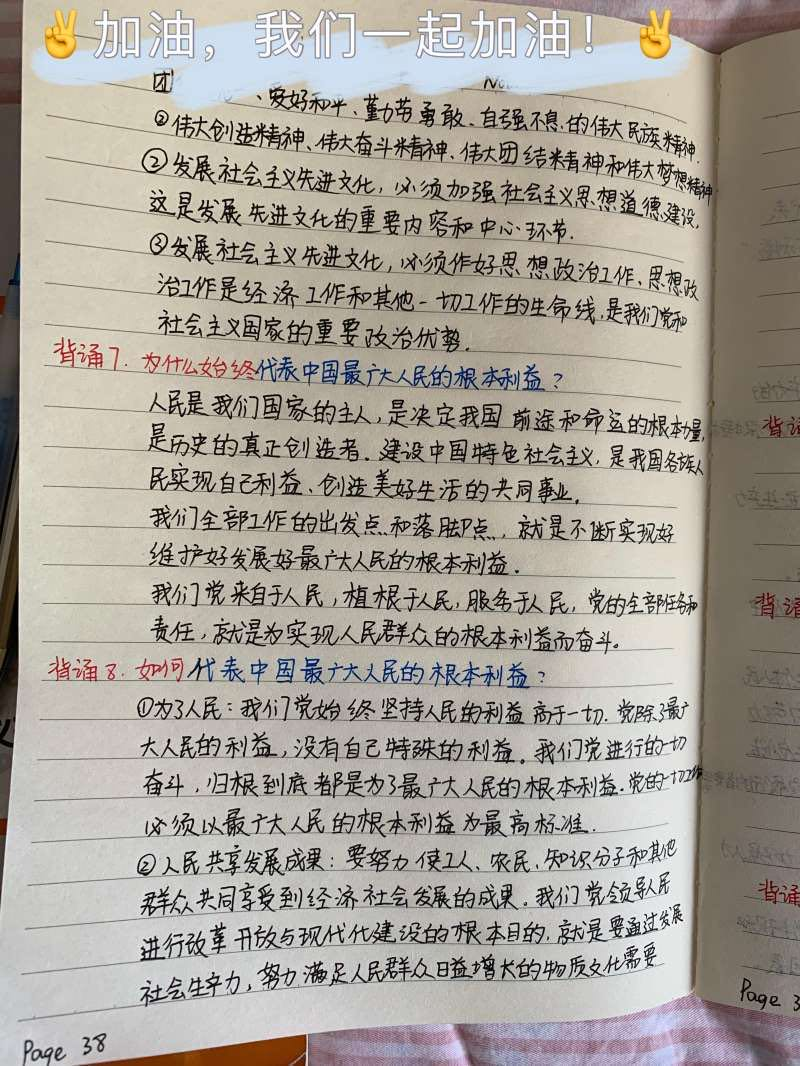 ✌加油，我们一起加油！✌
团 No
、爱好和平、勤劳勇敢、自强不息的伟大民族精神.
②伟大创造精神、伟大奋斗精神、伟大团结精神和伟大梦想精神
②发展社会主义先进文化，必须加强社会主义思想道德建设，
这是发展先进文化的重要内容和中心环节.
③发展社会主义先进文化，必须作好思想政治工作、思想政
治工作是经济工作和其他一切工作的生命线，是我们党和
社会主义国家的重要政治优势.
背诵7. 为什么始终代表中国最广大人民的根本利益？
人民是我们国家的主人，是决定我国前途和命运的根本力量，
是历史的真正创造者。建设中国特色社会主义，是我国各族人
民实现自己利益、创造美好生活的共同事业。
我们全部工作的出发点和落脚点，就是不断实现好
维护好发展好最广大人民的根本利益.
我们党来自于人民，植根于人民，服务于人民，党的全部任务和
责任，就是为实现人民群众的根本利益而奋斗。
背诵8. 如何代表中国最广大人民的根本利益？
①为了人民：我们党始终坚持人民的利益高于一切.党除了最广
大人民的利益，没有自己特殊的利益。我们党进行的一切
奋斗，归根到底都是为了最广大人民的根本利益.党的一切工作
必须以最广大人民的根本利益为最高标准.
②人民共享发展成果：要努力使工人、农民、知识分子和其他
群众共同享受到经济社会发展的成果。我们党领导人民
进行改革开放与现代化建设的根本目的，就是要通过发展
社会生产力，努力满足人民群众日益增长的物质文化需要
Page 38
背诵
背诵
背诵
Page 3